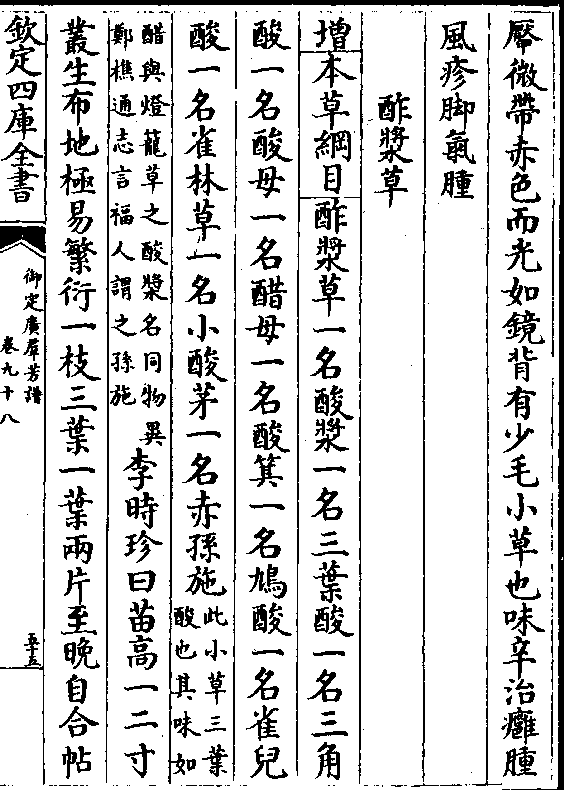 厴微帶赤色而光如鏡背有少毛小草也味辛治癰腫
風疹脚氣腫
酢漿草
增本草綱目酢漿草一名酸漿一名三葉酸一名三角
酸一名酸母一名醋母一名酸箕一名鳩酸一名雀兒
酸一名雀林草一名小酸茅一名赤孫施此小草三葉酸也其味如
醋與燈籠草之酸漿名同物異鄭樵通志言福人謂之孫施李時珍曰苗高一二寸
叢生布地極易繁衍一枝三葉一葉兩片至晚自合帖
欽定四庫全書
御定廣羣芳譜
卷九十八
五十五